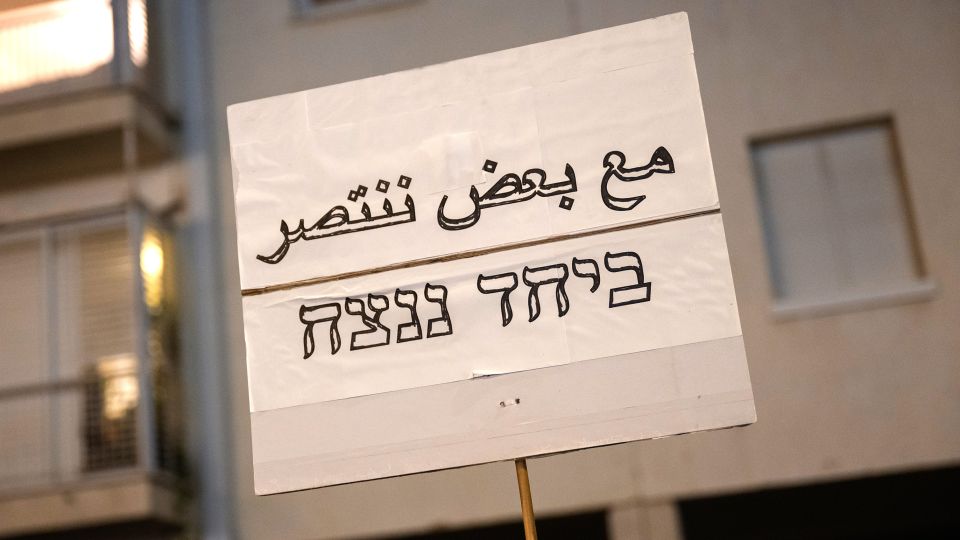 مع بعض ننتصر
ביחד ננצח